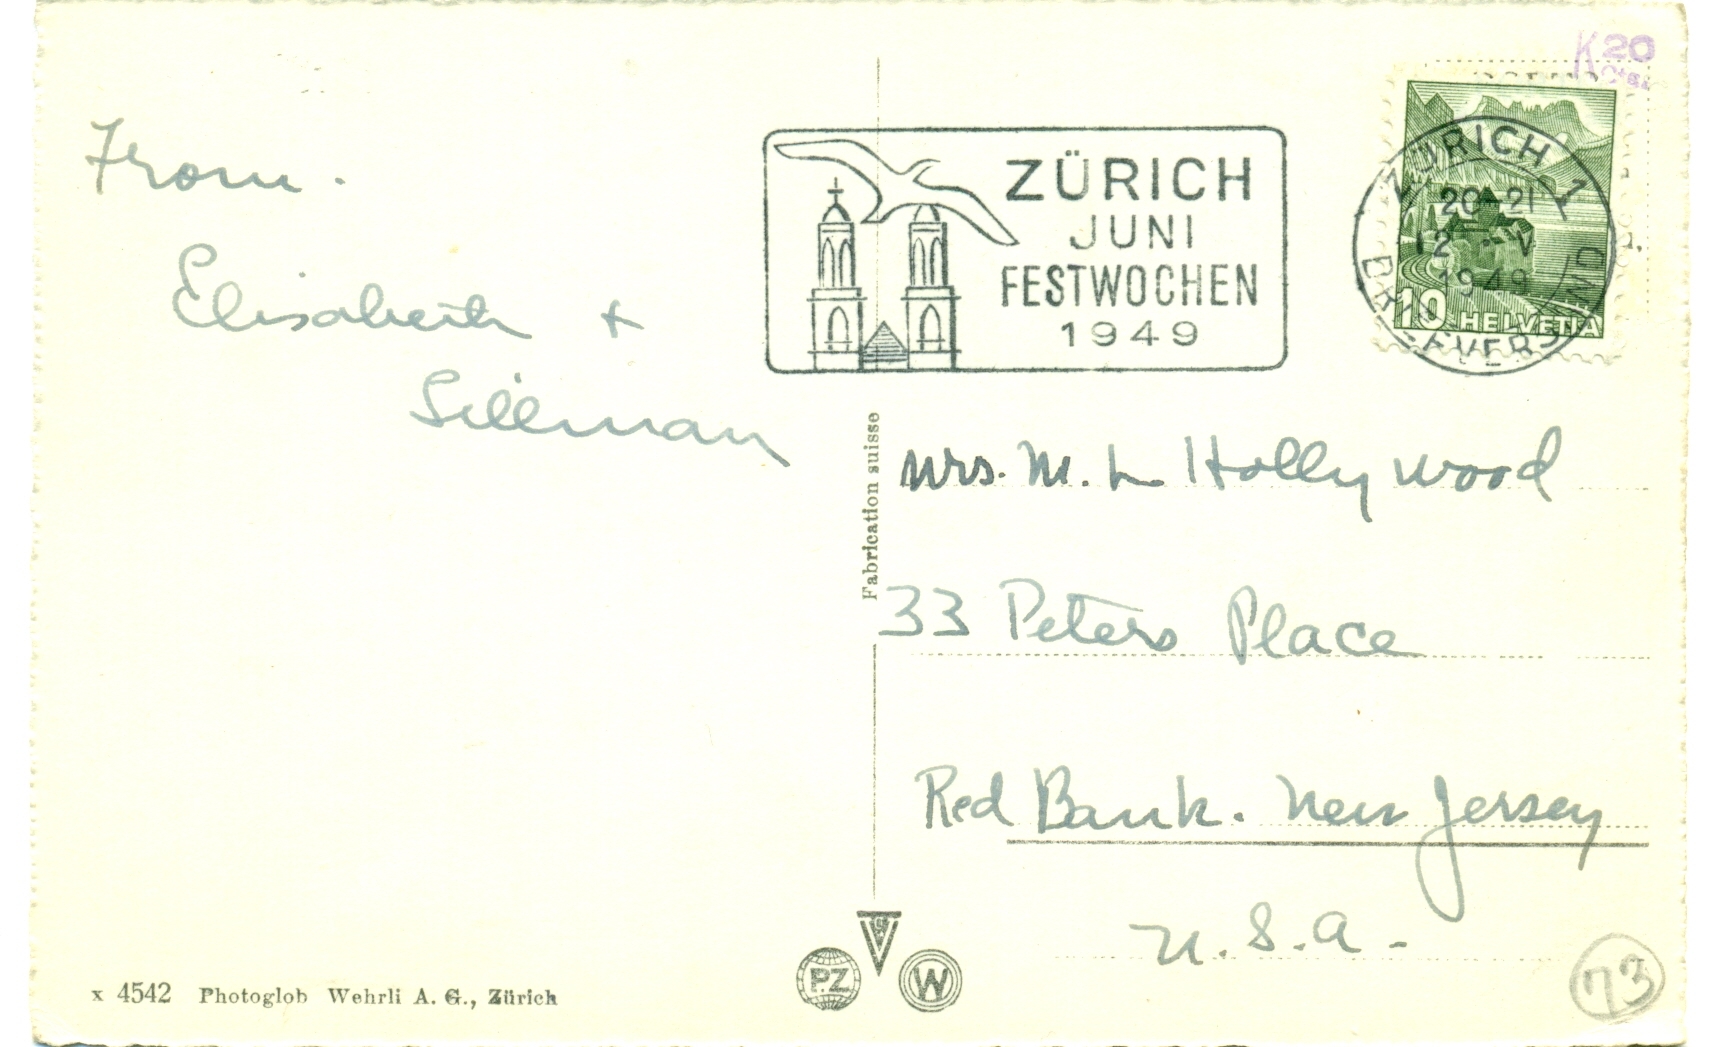 From.
Elisabeth +
Sillman
ZÜRICH
JUNI
FESTWOCHEN
1949
K 20
ZÜRICH 1
20-21
12 V
1949
10 HELVETIA
Fabrication suisse
Mrs. M. L Hollywood
33 Peters Place
Red Bank. New Jersey
U.S.A.
PZ
W
x 4542 Photoglob Wehrli A. G., Zürich
73